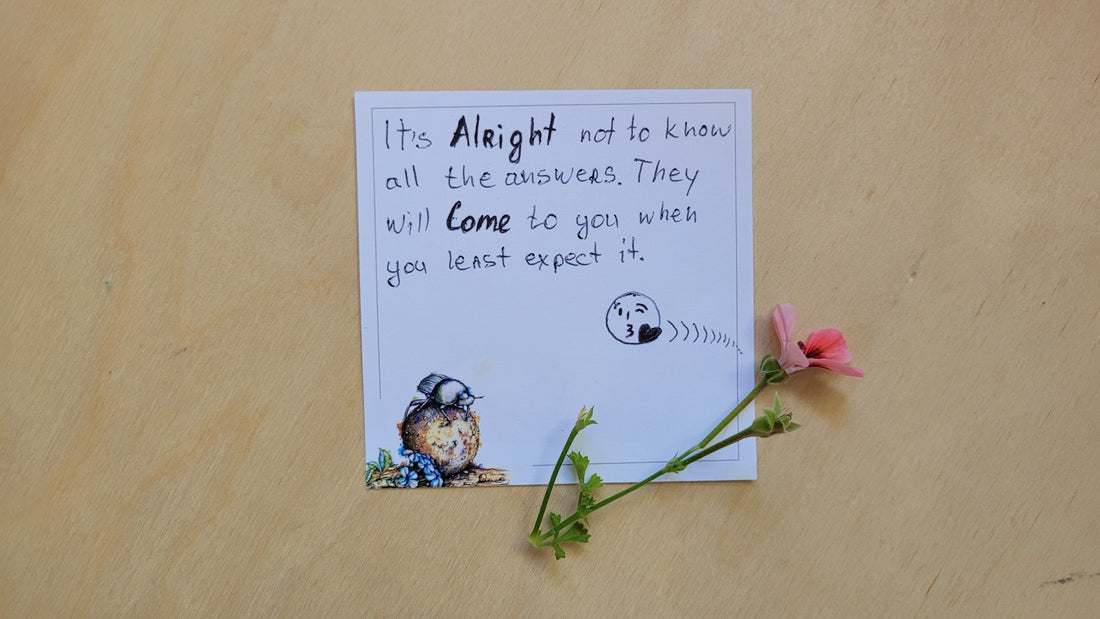 It's Alright not to know
all the answers. They
will Come to you when
you least expect it.